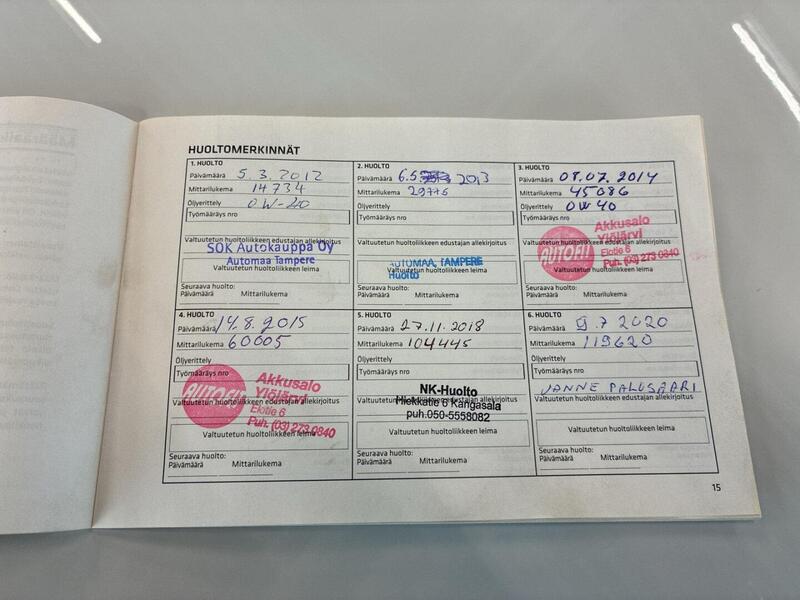 HUOLTOMERKINNÄT
1. HUOLTO
Päivämäärä 5.3.2012
Mittarilukema 14734
Öljyerittely 0W-40
Työmääräys nro
Valtuutetun huoltoliikkeen edustajan allekirjoitus
SOK Autokauppa Oy
Automaa Tampere
Valtuutetun huoltoliikkeen leima
Seuraava huolto:
Päivämäärä Mittarilukema
2. HUOLTO
Päivämäärä 6.5 2013
Mittarilukema 29776
Öljyerittely
Työmääräys nro
Valtuutetun huoltoliikkeen edustajan allekirjoitus
AUTOMAA, TAMPERE
Huolto
Valtuutetun huoltoliikkeen leima
Seuraava huolto:
Päivämäärä Mittarilukema
3. HUOLTO
Päivämäärä 08.07.2014
Mittarilukema 45086
Öljyerittely 0W40
Työmääräys nro
Valtuutetun huoltoliikkeen edustajan allekirjoitus
AUTOFIT
Akkusalo
Ylöjärvi
Elotie 6
Puh. (03) 273 0840
Valtuutetun huoltoliikkeen leima
Seuraava huolto:
Päivämäärä Mittarilukema
4. HUOLTO
Päivämäärä 14.8.2015
Mittarilukema 60005
Öljyerittely
Työmääräys nro
Valtuutetun huoltoliikkeen edustajan allekirjoitus
AUTOFIT
Akkusalo
Ylöjärvi
Elotie 6
Puh. (03) 273 0840
Valtuutetun huoltoliikkeen leima
Seuraava huolto:
Päivämäärä Mittarilukema
5. HUOLTO
Päivämäärä 27.11.2018
Mittarilukema 104445
Öljyerittely
Työmääräys nro
Valtuutetun huoltoliikkeen edustajan allekirjoitus
NK-Huolto
Hiekkatie 6 Kangasala
puh.050-5558082
Valtuutetun huoltoliikkeen leima
Seuraava huolto:
Päivämäärä Mittarilukema
6. HUOLTO
Päivämäärä .7 2020
Mittarilukema 119620
Öljyerittely
Työmääräys nro
JANNE PALOSAARI
Valtuutetun huoltoliikkeen edustajan allekirjoitus
Valtuutetun huoltoliikkeen leima
Seuraava huolto:
Päivämäärä Mittarilukema
15